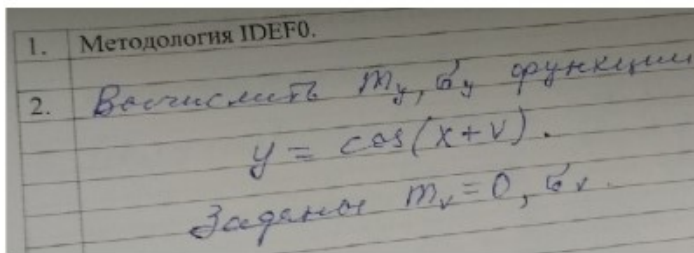 1. Методология IDEF0.
2. Вычислить m_y, σ_y функции
y = cos(x+v).
Заданы m_v = 0, σ_v.